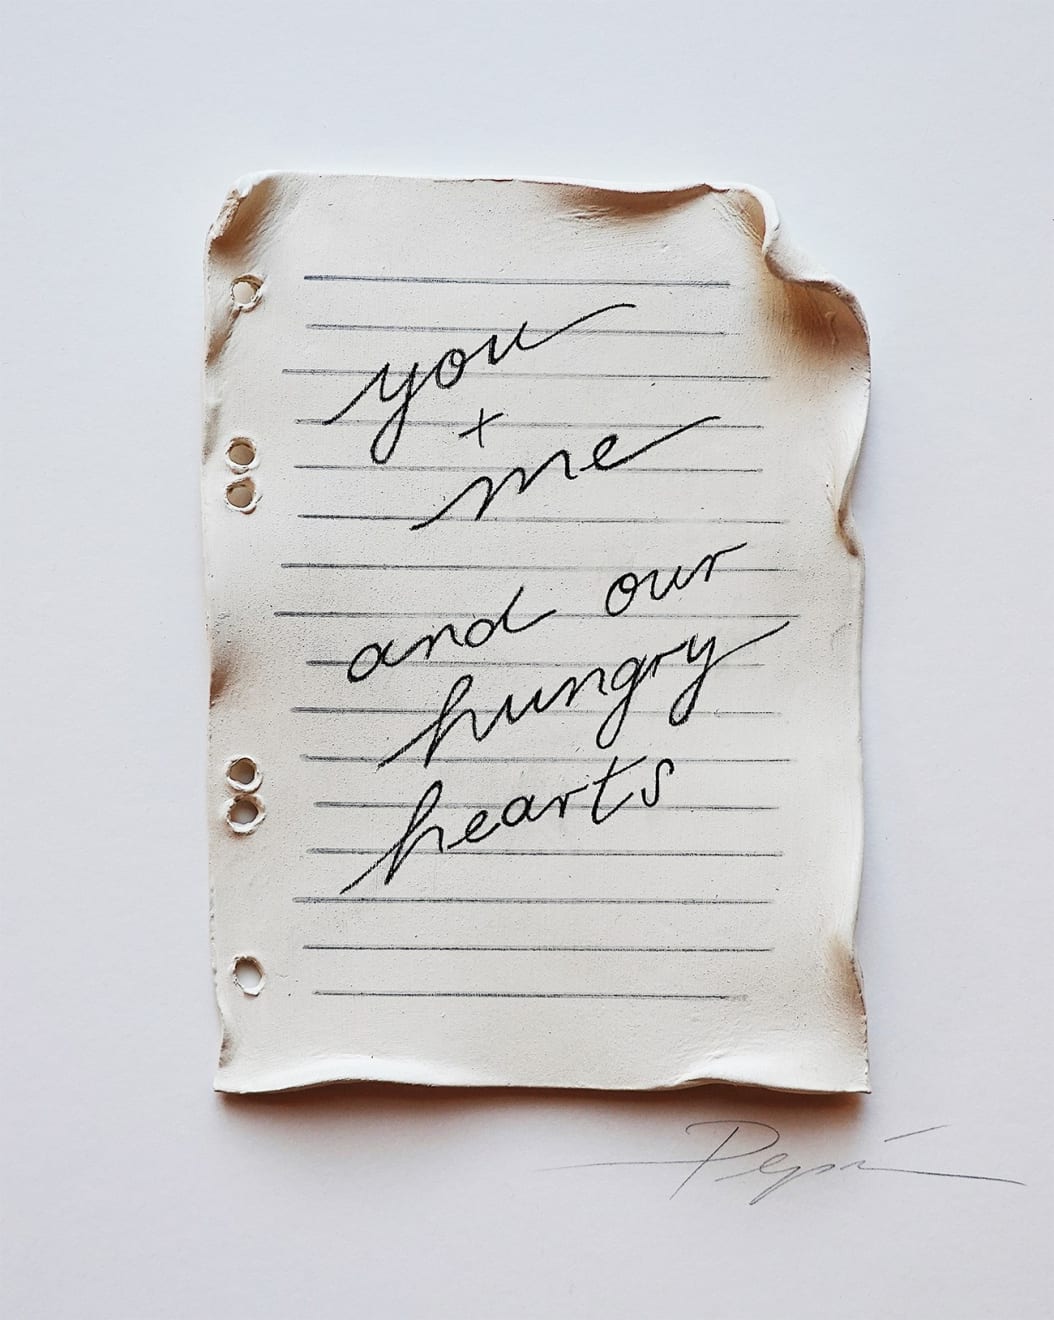 you
+
me
and our
hungry
hearts